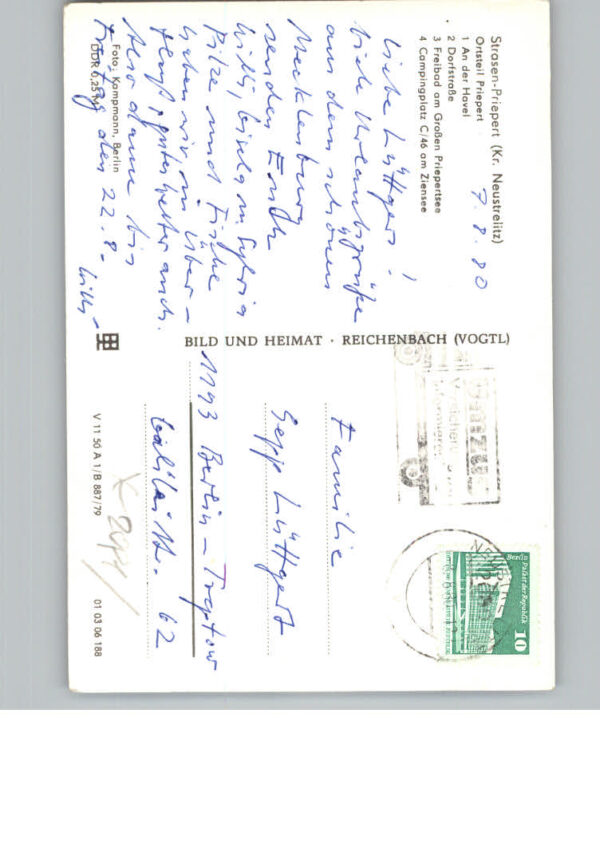 Strasen-Priepert (Kr. Neustrelitz)
Ortsteil Priepert
1 An der Havel
2 Dorfstraße
3 Freibad am Großen Priepertsee
4 Campingplatz C/46 am Ziensee
7.8.80
Liebe Lüttgers!
viele Urlaubsgrüße
aus dem schönen
Mecklenburg
senden Euch
Willi, Gisela u. Sylvia
Pilze und Fische
haben wir im Über-
fluß, gutes Wetter auch.
Also dann bis
Freitag den 22.8.
Willi
Foto: Kampmann, Berlin
DDR 0,25 M
BILD UND HEIMAT · REICHENBACH (VOGTL)
V 11 50 A 1/B 887/79
01 03 06 188
Familie
Sepp Lüttgert
1193 Berlin - Treptow
62
Berlin Palast der Republik
10